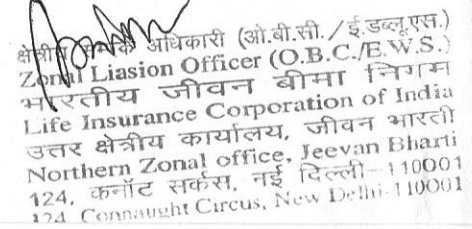 क्षेत्रीय अधिकारी (ओ.बी.सी./ई.डब्लू.एस.)
Zonal Liasion Officer (O.B.C./E.W.S.)
भारतीय जीवन बीमा निगम
Life Insurance Corporation of India
उत्तर क्षेत्रीय कार्यालय, जीवन भारती
Northern Zonal office, Jeevan Bharti
124, कनॉट सर्कस, नई दिल्ली-110001
124 Connaught Circus, New Delhi-110001